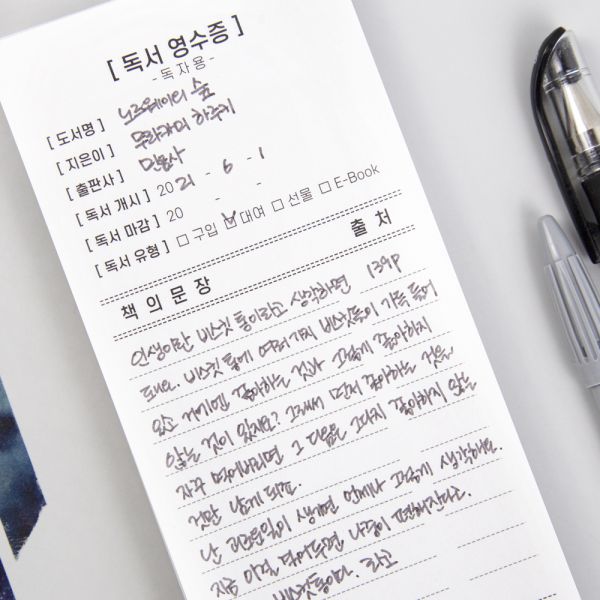 [ 독서 영수증 ]
- 독자용 -
[ 도서명 ] 노르웨이의 숲
[ 지은이 ] 무라카미 하루키
[ 출판사 ] 민음사
[ 독서 개시 ] 2021 - 6 - 1
[ 독서 마감 ] 20 - -
[ 독서 유형 ] □ 구입 ☑ 대여 □ 선물 □ E-Book
책의 문장 출처
인생이란 비스킷 통이라고 생각하면 139P
돼요. 비스킷 통에 여러가지 비스킷들이 가득 들어
있고 거기엔 좋아하는 것과 그렇게 좋아하지
않는 것이 있지요? 그래서 먼저 좋아하는 것을
자꾸 먹어버리면 그 다음엔 그다지 좋아하지 않는
것만 남게 되죠.
난 괴로운일이 생기면 언제나 그렇게 생각해요.
지금 이걸 겪어두면 나중이 편해진다고.
비스킷통이다. 라고